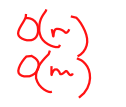 O(n)
O(m)